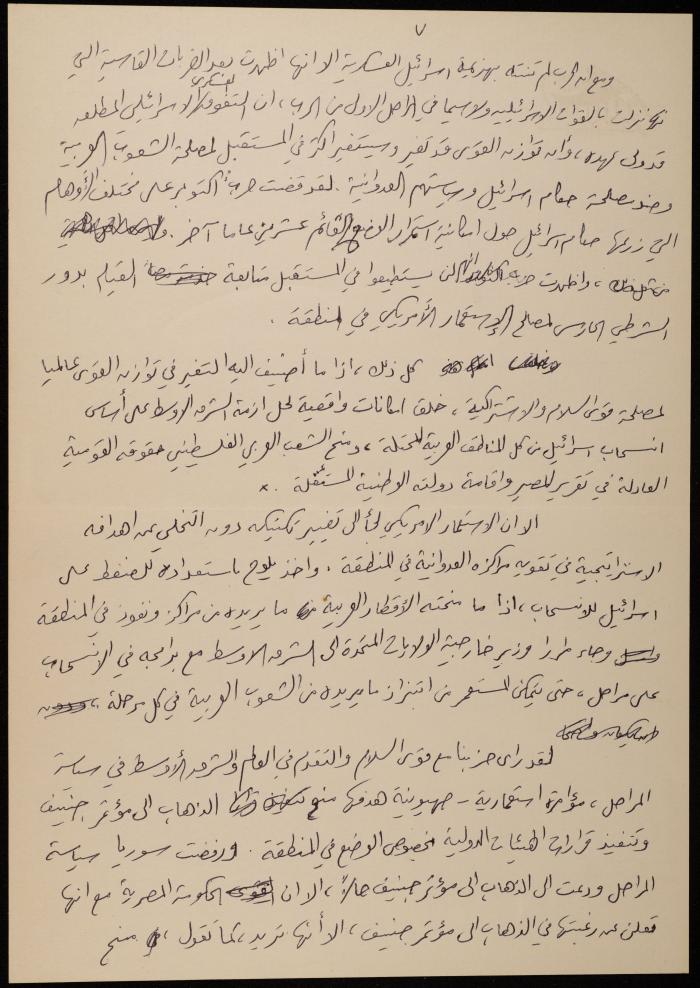 ٧
ومع ان الحرب لم تنته بهزيمة اسرائيل العسكرية الا انها اظهرت بعد الضربات القاسية التي
نزلت بالقوات الاسرائيلية ولا سيما في المراحل الاولى من الحرب، ان التفوق العسكري الاسرائيلي المطلق
قد ولى عهده، وأن توازن القوى قد تغير وسيتغير اكثر في المستقبل لمصلحة الشعوب العربية
وضد مصلحة حكام اسرائيل وسياستهم العدوانية. لقد قضت حرب أكتوبر على مختلف الأوهام
التي زرعها حكام اسرائيل حول امكانية استمرار الوضع القائم عشرين عاما آخر.
، واظهرت لن يستطيعوا في المستقبل متابعة القيام بدور
الشرطي الحارس لمصالح الإستعمار الأمريكي في المنطقة.
كل ذلك، اذا ما أضيف اليه التغير في توازن القوى عالميا
لمصلحة قوى السلام والاشتراكية، خلق امكانات واقعية لحل ازمة الشرق الاوسط على أساس
انسحاب اسرائيل من كل المناطق العربية المحتلة، ومنح الشعب العربي الفلسطيني حقوقه القومية
العادلة في تقرير المصير واقامة دولته الوطنية المستقلة. ×
الا ان الاستعمار الامريكي لجأ الى تغيير تكتيكه دون التخلي عن اهدافه
الاستراتيجية في تقوية مراكزه العدوانية في المنطقة. واخذ يلوح باستعداده للضغط على
اسرائيل للانسحاب، اذا ما منحته الأقطار العربية ما يريده من مراكز ونفوذ في المنطقة
وجاء مرارا وزير خارجية الولايات المتحدة الى الشرق الاوسط مع برامجه في الانسحاب
على مراحل، حتى يتمكن المستعمر من ابتزاز ما يريده من الشعوب العربية في كل مرحلة،
لقد رأى حزبنا مع قوى السلام والتقدم في العالم والشرق الأوسط في سياسة
المراحل، مؤامرة استعمارية - صهيونية هدفها منع الذهاب الى مؤتمر جنيف
وتنفيذ قرارات الهيئات الدولية بخصوص الوضع في المنطقة. ورفضت سوريا سياسة
المراحل ودعت الى الذهاب الى مؤتمر جنيف حالاً، الا ان الحكومة المصرية مع انها
تعلن عن رغبتها في الذهاب الى مؤتمر جنيف، الا أنها تريد، كما تقول، منح